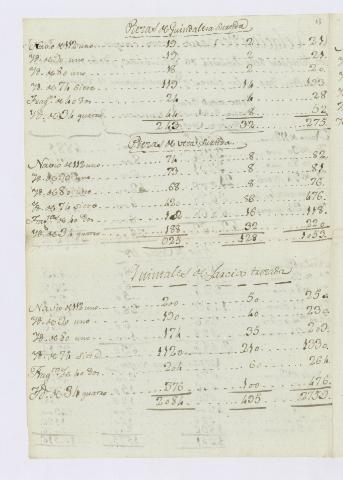 Piezas de Guindaleza surtida
Navio de 112 uno 19 2 21
Yd. de 80 uno 19 2 21
Yd. de 80 uno 18 2 20
Yd. de 74 siete 119 14 133
Frag.tas de 40 dos 24 4 28
Yd. de 34 quatro 44 8 52
243 32 275
Piezas de veta surtida
Navio de 112 uno 74 8 82
Yd. de 80 uno 73 8 81
Yd. de 80 uno 68 8 76
Yd. de 74 siete 56 476
Frag.tas de 40 dos 16 118
Yd. de 34 quatro 188 32 220
925 128 1053
Quintales de Jarcia surtida
Navio de 112 uno 200 50 250
Yd. de 80 uno 190 40 230
Yd. de 80 uno 174 35 209
Yd. de 74 siete 1120 210 1330
Frag.tas de 40 dos 204 60 264
Yd. de 34 quatro 376 100 476